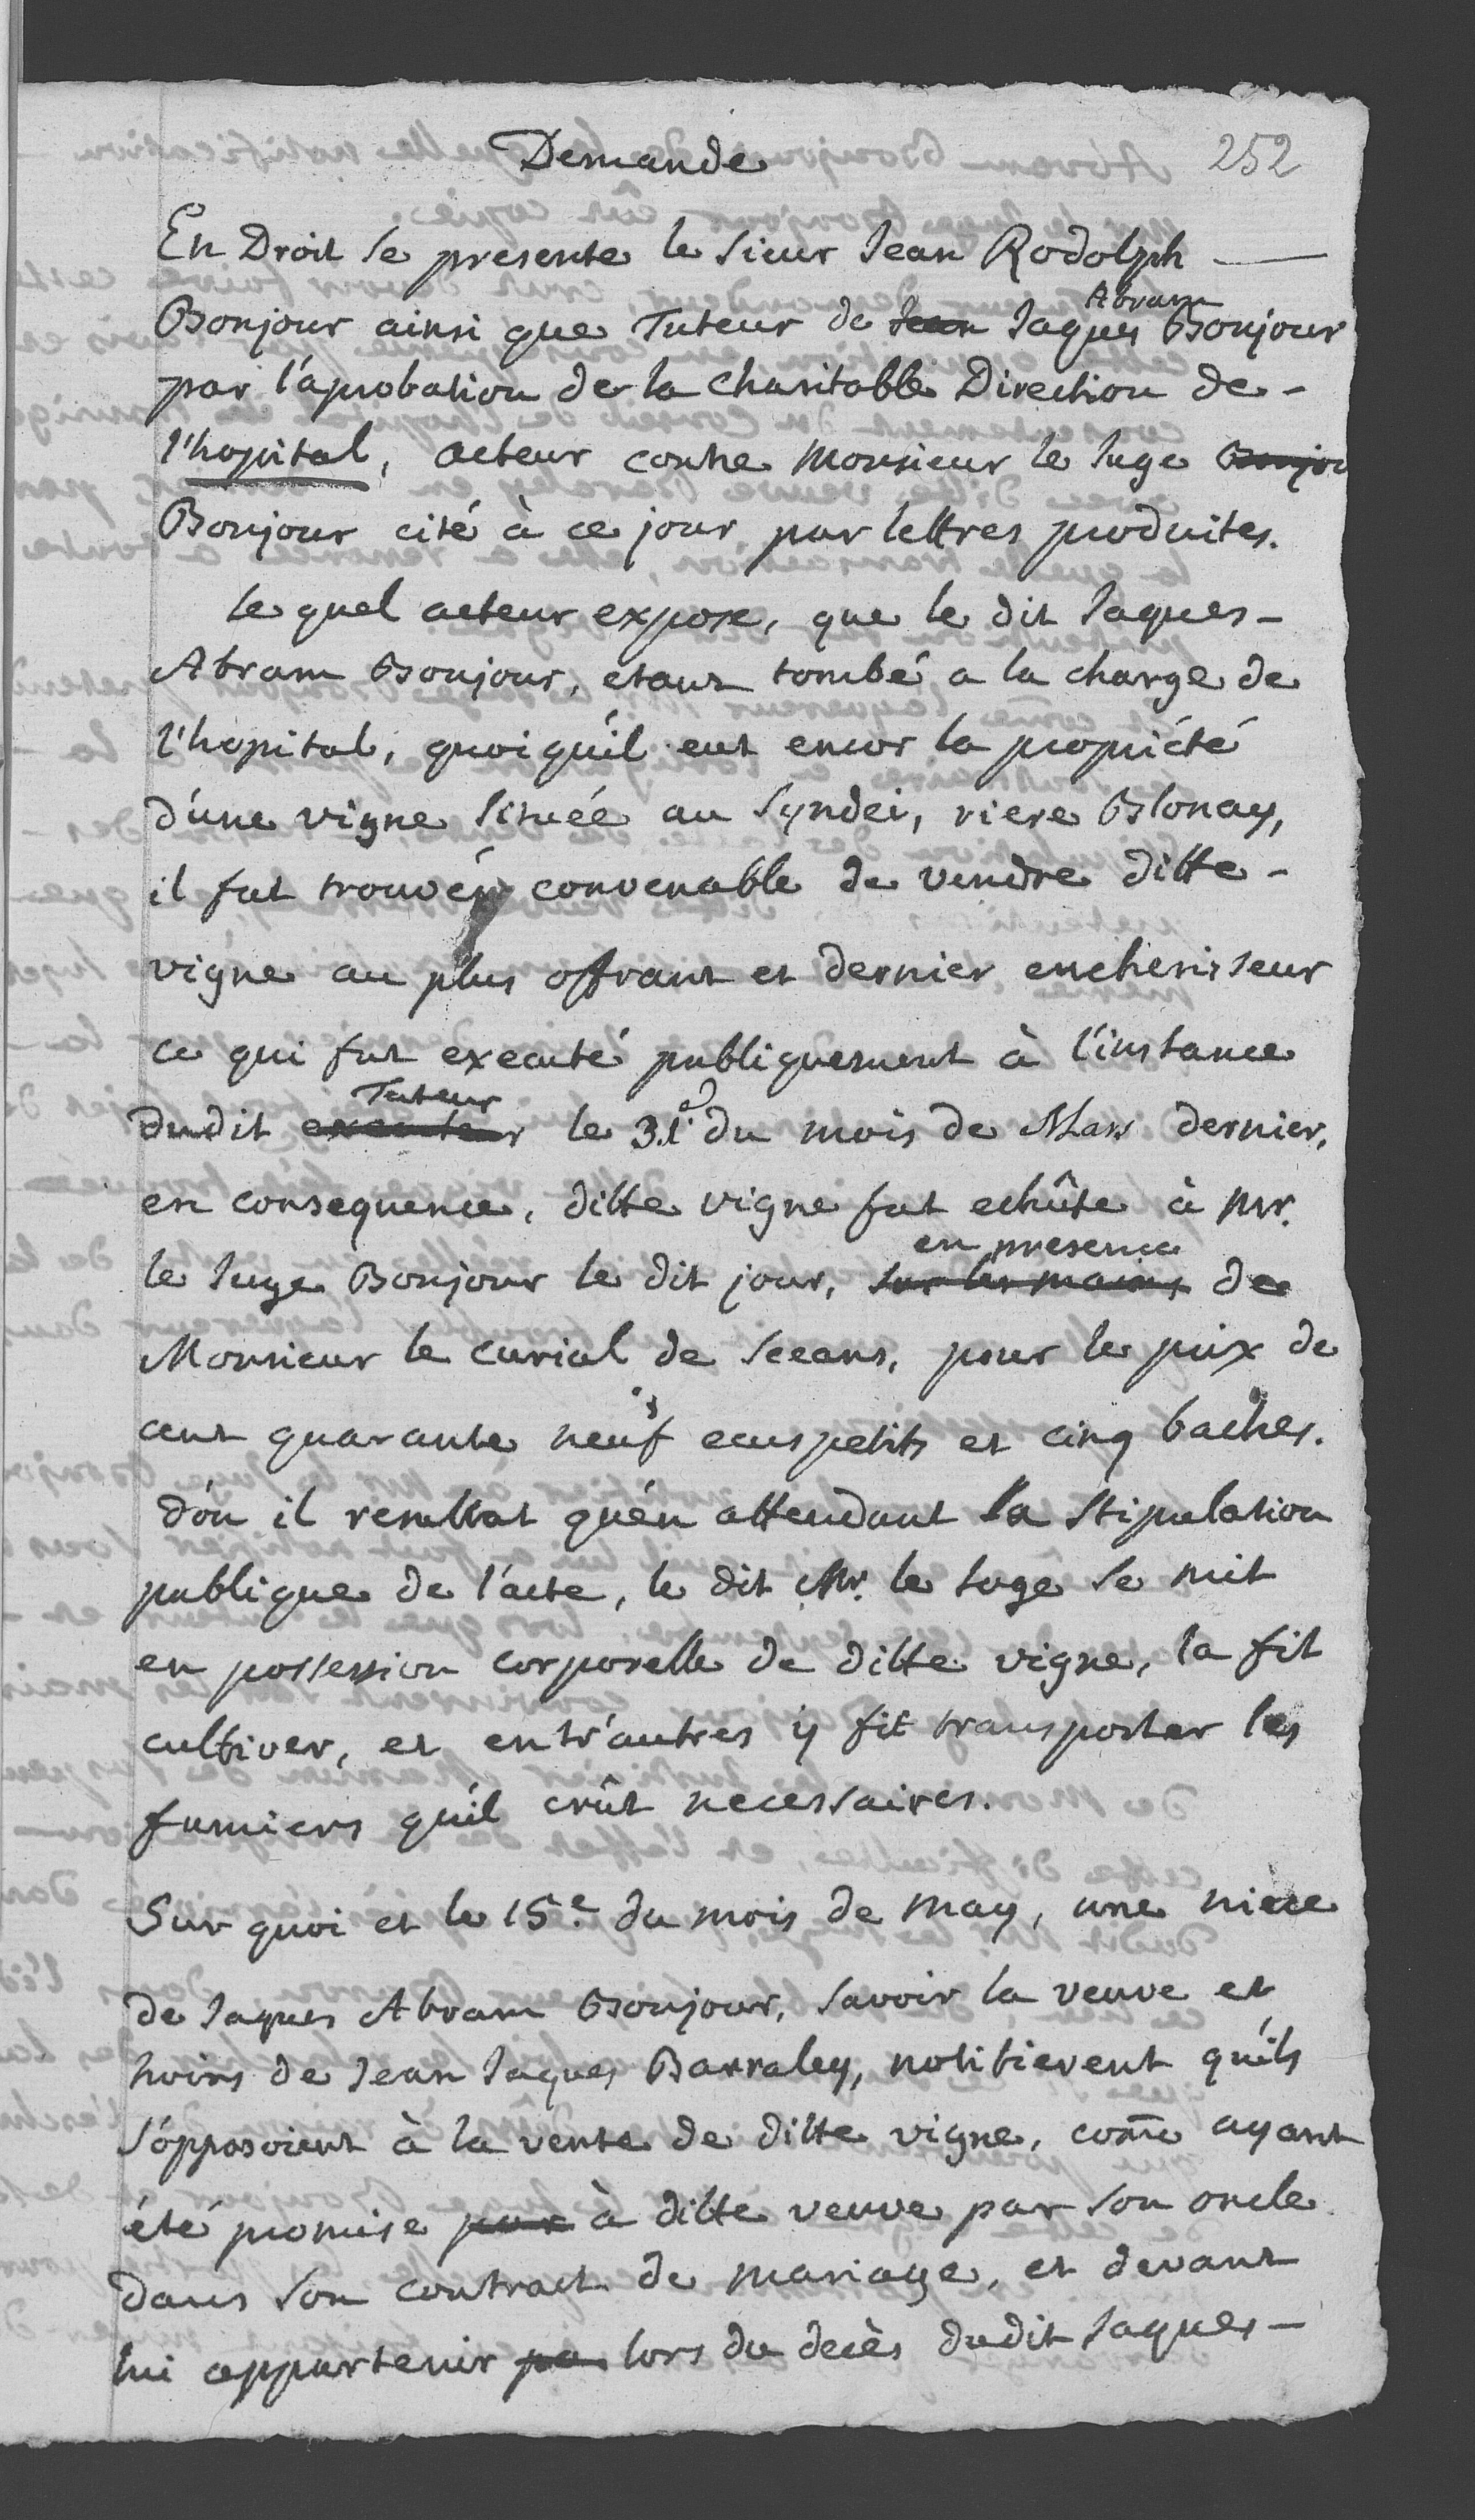 252
Demande
En Droit se presente le sieur Jean Rodolph —
Bonjour ainsi que Tuteur de Jean Jaques Abram Bonjour
par l'aprobation de la charitable Direction de -
l'hopital, acteur contre Monsieur le Juge Bonjou
Bonjour cité à ce jour par lettres produites.
le quel acteur expose, que le dit Jaques -
Abram Bonjour, etant tombé a la charge de
l'hopital, quoiqu'il eut encor la propriété
d'une vigne située au Syndei, riere Blonay,
il fut trouvé convenable de vendre ditte -
vigne au plus offrant et dernier encherisseur
ce qui fut executé publiquement à l'instance
dudit executeur Tuteur le 31e. du mois de Mars dernier,
en consequence, ditte vigne fut echûte à Mr.
le Juge Bonjour le dit jour, sur les mains en presence de
Monsieur le curial de sceans, pour le prix de
cent quarante neuf ecus petits et cinq baches.
d'ou il resultat qu'en attendant la stipulation
publique de l'acte, le dit Mr. le Juge se mit
en possession corporelle de ditte vigne, la fit
cultiver, et entr'autres y fit transporter les
fumiers qu'il crût necessaires.
Sur quoi et le 15e. du mois de May, une niece
de Jaques Abram Bonjour, savoir la veuve et
hoirs de Jean Jaques Barraley, notifierent qu'ils
s'opposoient à la vente de ditte vigne, comē ayant
été promise par à ditte veuve par son oncle
dans son contract de mariage, et devant
lui appartenir pa lors du decès dudit Jaques -